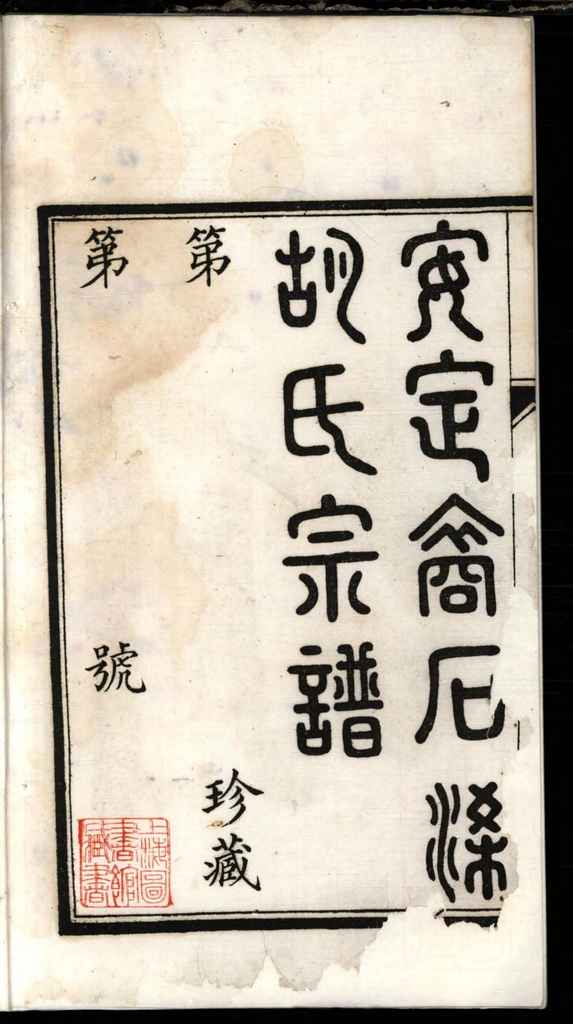 安定裔石梁
胡氏宗譜
第
珍藏
第
號
上海圖
書館
藏書